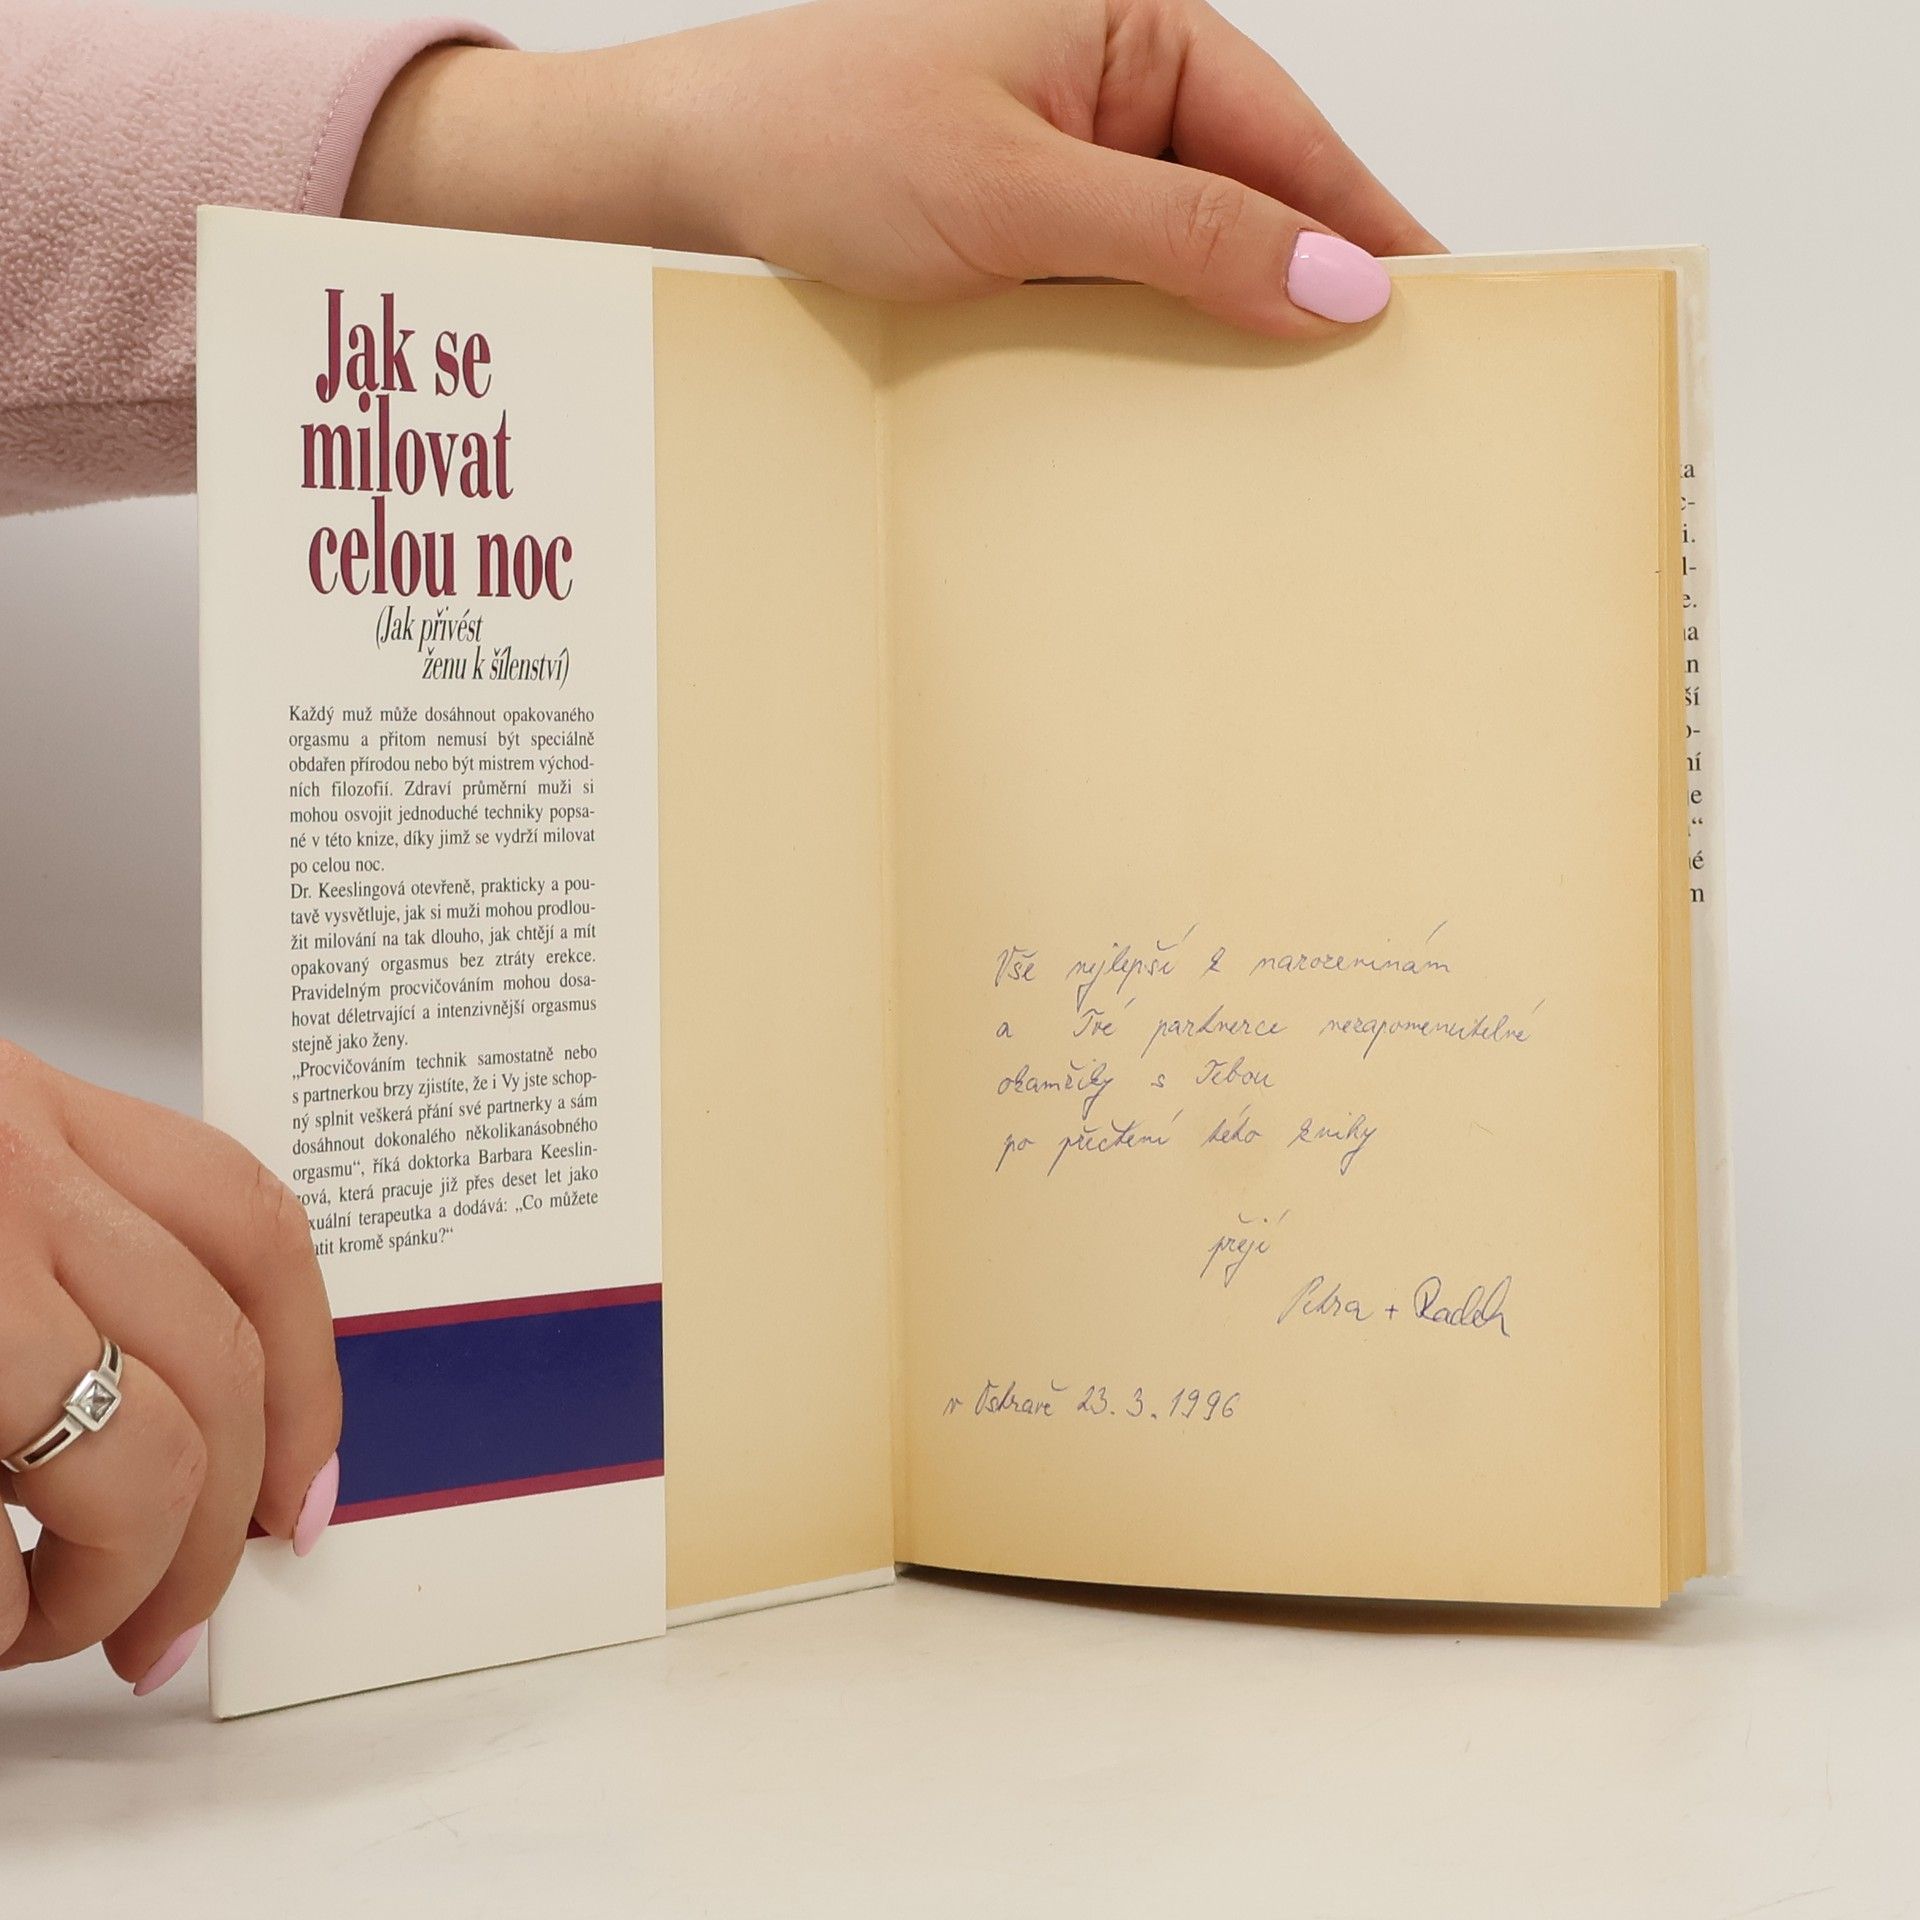 Jak se
milovat
celou noc
(Jak přivést
ženu k šílenství)
Každý muž může dosáhnout opakovaného
orgasmu a přitom nemusí být speciálně
obdařen přírodou nebo být mistrem východ-
ních filozofií. Zdraví průměrní muži si
mohou osvojit jednoduché techniky popsa-
né v této knize, díky jimž se vydrží milovat
po celou noc.
Dr. Keeslingová otevřeně, prakticky a pou-
tavě vysvětluje, jak si muži mohou prodlou-
žit milování na tak dlouho, jak chtějí a mít
opakovaný orgasmus bez ztráty erekce.
Pravidelným procvičováním mohou dosa-
hovat déletrvající a intenzivnější orgasmus
stejně jako ženy.
„Procvičováním technik samostatně nebo
s partnerkou brzy zjistíte, že i Vy jste schop-
ný splnit veškerá přání své partnerky a sám
dosáhnout dokonalého několikanásobného
orgasmu“, říká doktorka Barbara Keeslin-
gová, která pracuje již přes deset let jako
xuální terapeutka a dodává: „Co můžete
atit kromě spánku?“
Vše nejlepší k narozeninám
a Tvé partnerce nezapomenutelné
okamžiky s Tebou
po přečtení této knihy
přejí
Petra + Radek
v Ostravě 23.3.1996